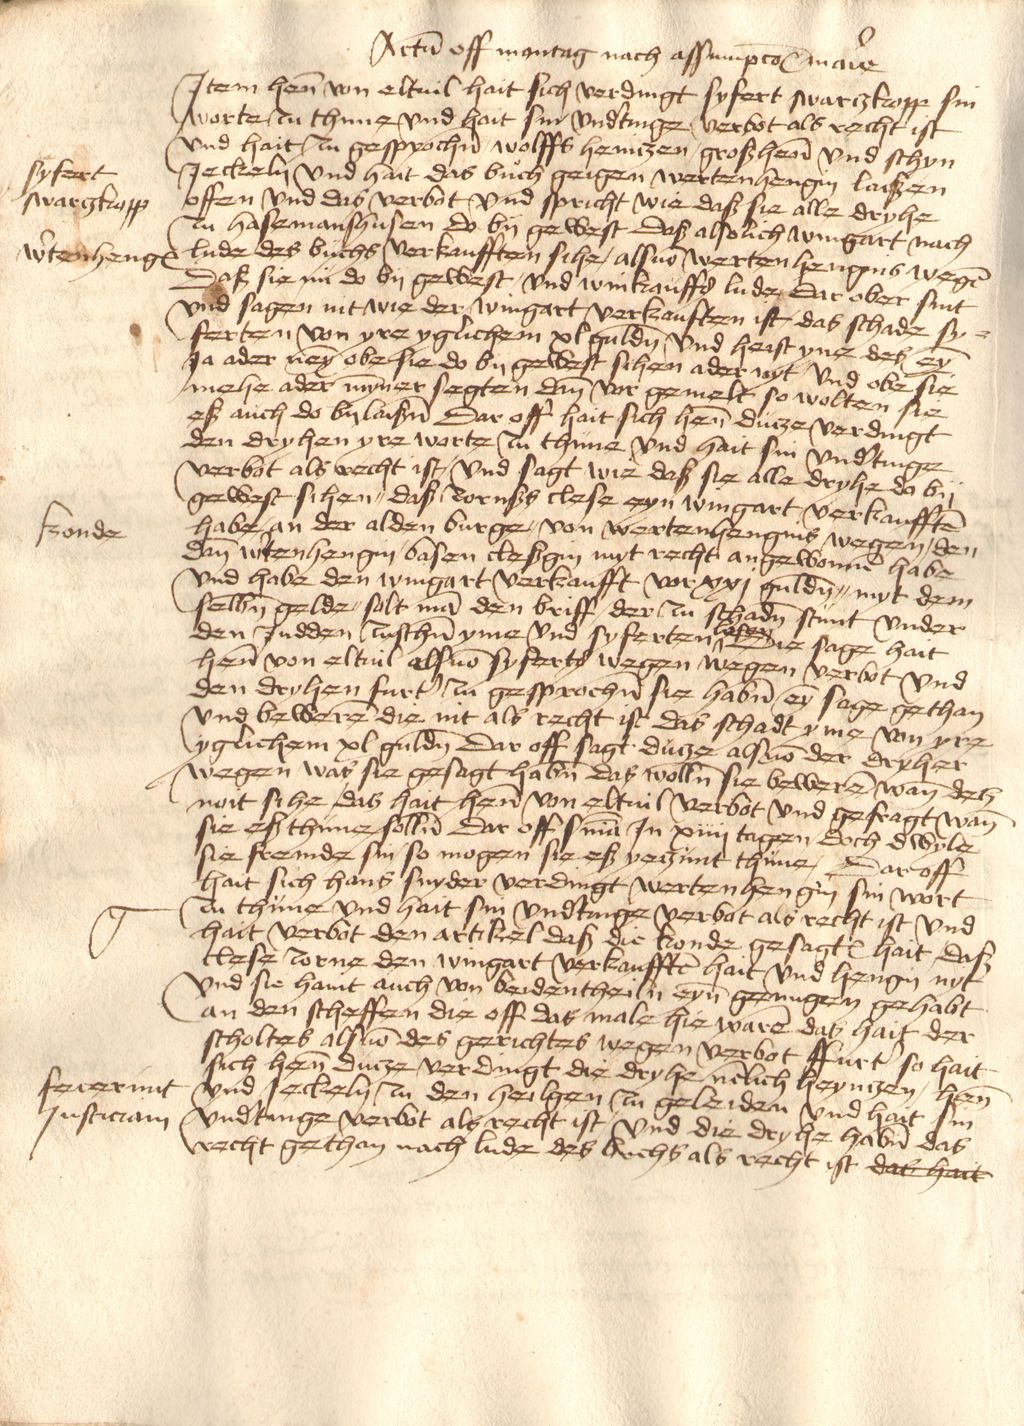 Actū off montag nach assumpco(n) marie
Item hen̄ von eltuil hait sich verdingt syfert swarczkopp sin
worte zu thune vnd hait sin vnd'tinge verbot als recht ist
vnd hait zu gesprochn̄ wolffs henczen großhen̄ vnd schyn
syfert
Jeckeln vnd hait das buch geigen wertenhengin laißen
swarczkopp
offen vnd das verbot vnd spricht wie daß sie alle dryhe
zu hasemanshusen do bij gewest daß alsolich wingart nach
w'tenheng
lude des buchs verkaufften sihe alsuō wertenhengins wegē
Daß sie mit do bij gewest vnd winkauffs lude dar ober sint
vnd sagen nit wie der wingart verkaufften ist das schade sy-
ferten von yre yglichem xl guldn̄ vnd heist yne des ey̅
Ja ader ney obe sie do bij gewest sihen ader nyt vnd obe sie
mehe ader my̅ner segten dan̄ vor gemelt so wolten sie
eß auch do by laißn̄ Dar off hait sich hen̄ ducze verdingt
den dryhen yre worte zu thune vnd hait sin vnd'tinge
verbot als recht ist vnd sagt wie daß sie alle dryhe do bij
gewest sihen daß zornßs clese eyn wingart verkaufftē
konde
habe an der alden burge von wertenhengins wegen den
dan̄ w'tenhengin basen cleßgin myt recht angewonn̄ habe
vnd habe den wingart verkaufft vor xxj guldn̄ myt dem
selbn̄ gelde solt mā den briff der zu schadn̄ stunt vnder
den Judden zuschn̄ yme vnd syferten losen Die sage hait
hen̄ von eltuil alsuō syferts wegen wegen verbot vnd
den dryhen furt' zu gesprochn̄ sie habn̄ ey̅ sage gethan
vnd bewerē die nit als recht ist das schadt yme von yre
yglichem xl guldn̄ Dar off sagt ducze alsuō der dryher
wegen was sie gesagt habn̄ das wolln̄ sie bewerē wan̄ des
noit sihe das hait hen̄ von eltuil verbot vnd gefragt wan̄
sie eß thune solln̄ Dar off sniā In xiiij tagen doch dwyle
sie fremde sin so mogen sie eß yeczunt thune Dar off
hait sich hans snyder verdingt wertenhengin sin wort
zu thune vnd hait sin vnd'tinge verbot als recht ist vnd
hait verbot den artikel daß die konde gesagt hait daß
clese zorne den wingart verkaufftē hait vnd hengin nyt
vnd sie haint auch von beidentheiln eyn genugen gehabt
an den scheffen die off das male hie warē das hait der
scholtes alsuō des gerichtes wegen verbot ffurt' so hait
sich hen̄ ducze verdingt die dryhe nēlich heynczen hen̄
fecerunt
vnd Jeckeln zu den heilgen zu geleiden vnd hait sin
Justiciam
vnd'tinge verbot als recht ist vnd die dryhe habn̄ das
recht gethan nach lude des buchs als recht ist das hait